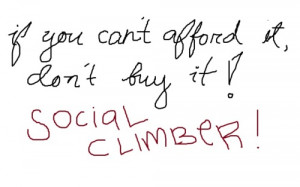 if you can't afford it,
don't buy it!
SOCIAL
CLIMBER!